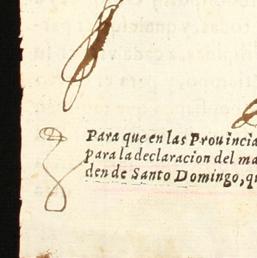 Para que en las Prouincia
para la declaracion del ma
den de Santo Domingo, qu